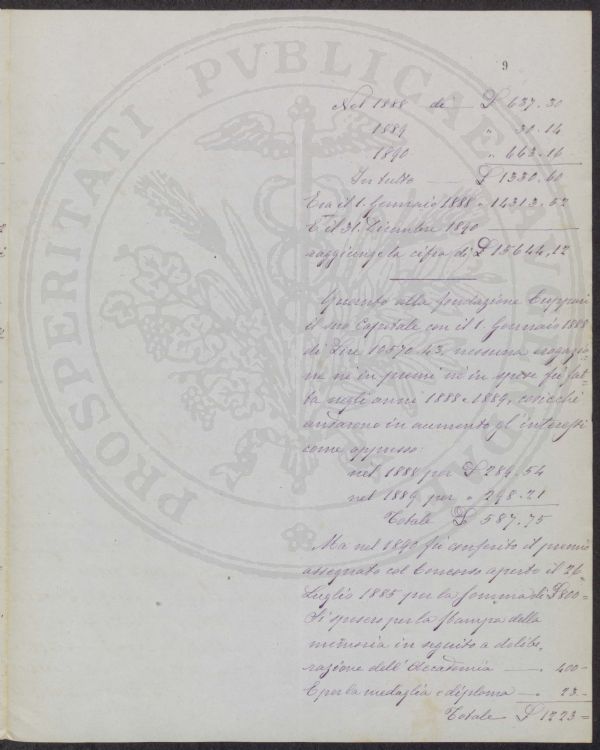 PROSPERITATI PVBLICAE AVGENDAE
9
Nel 1888 – de – £ 637.30
1889 " 30.14
1890 " 663.16
In tutto — £ 1330.60
Era il 1. Gennaio 1888 " 14313.52
E il 31. Dicembre 1890
raggiunge la cifra di £ 15644,12
Quanto alla fondazione Cuppari
il suo Capitale era il 1. Gennaio 1888
di Lire 10570.43, nessuna erogazio=
ne nè in premi nè in spese fù fat=
ta negli anni 1888 e 1889, cosicchè
andarono in aumento gl'interessi
come appresso:
nel 1888 per £ 289.54
nel 1889 per " 298.21
Totale £ 587.75
Ma nel 1890 fù conferito il premio
assegnato col Concorso aperto il 26
Luglio 1885 per la somma di £ 800=
Si spesero per la stampa della
memoria in seguito a delibe,
razione dell'Accademia — . 400=
E per la medaglia e diploma — . 23.=
Totale £ 1223=